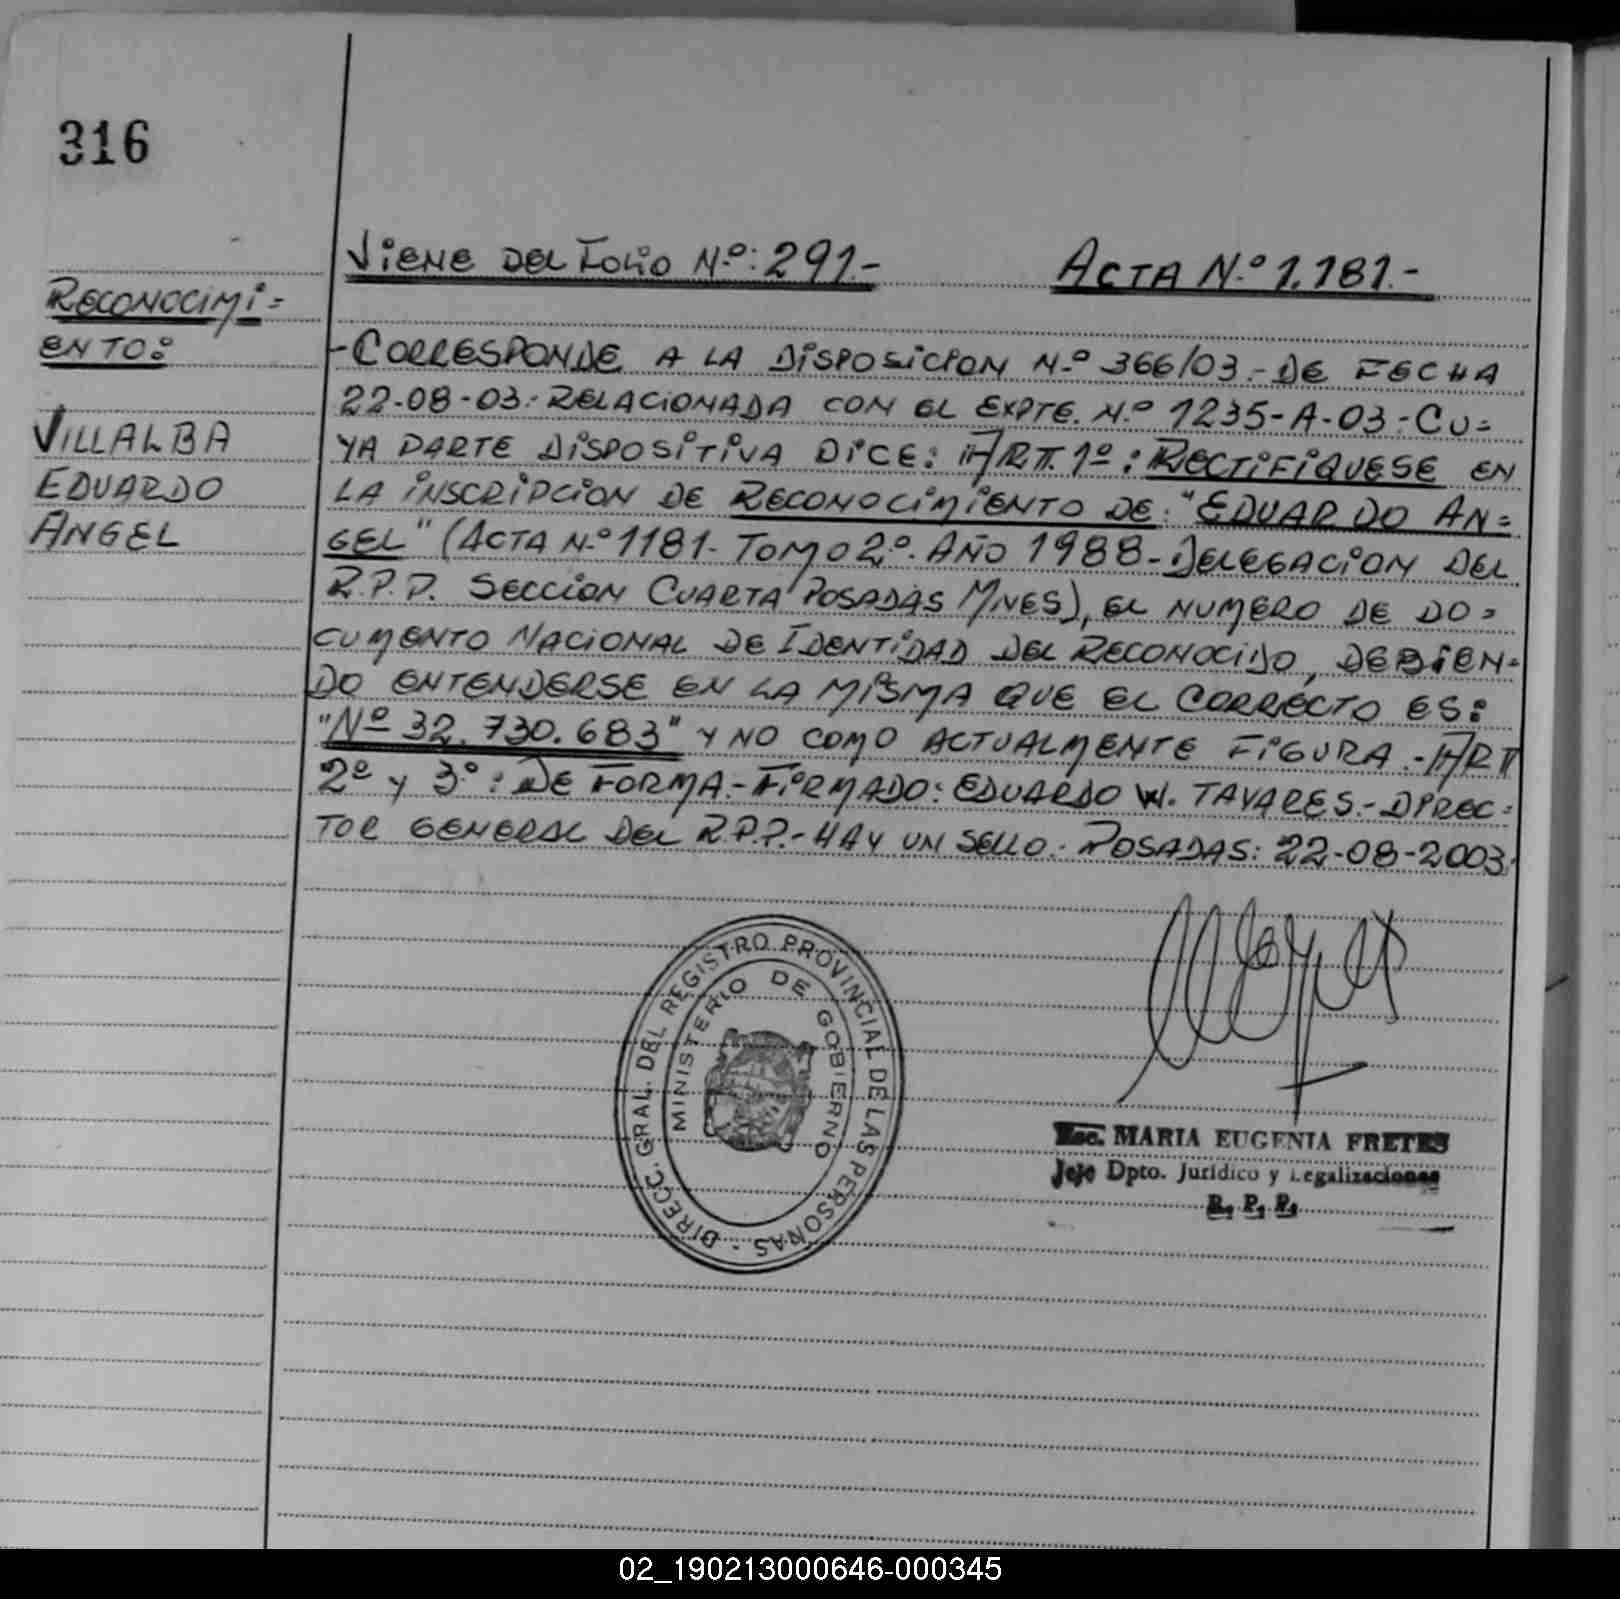 316
Viene del Folio N.º: 291.- Acta N.º 1.181.-
Reconocimi=
ento:
Villalba
Eduardo
Angel
-Corresponde a la Disposicion N.º 366/03.- de fecha
22-08-03.- relacionada con el Expte. N.º 1235-A-03.- Cu=
ya parte dispositiva dice: Art. 1º: Rectifiquese en
la inscripcion de Reconocimiento de: "Eduardo An=
gel" (Acta N.º 1181- Tomo 2º. Año 1988- Delegacion del
R.P.P. Seccion Cuarta Posadas Mnes), el numero de do=
cumento Nacional de Identidad del Reconocido, debien=
do entenderse en la misma que el correcto es:
"Nº 32.730.683" y no como actualmente figura.- Art
2º y 3º: De forma.- Firmado: Eduardo W. Tavares.- Direc=
tor General del R.P.P.- Hay un sello.- Posadas: 22-08-2003.
DIRECC. GRAL. DEL REGISTRO PROVINCIAL DE LAS PERSONAS -
MINISTERIO DE GOBIERNO
Esc. MARIA EUGENIA FRETES
Jefe Dpto. Jurídico y Legalizaciones
R. P. P.
02_190213000646-000345